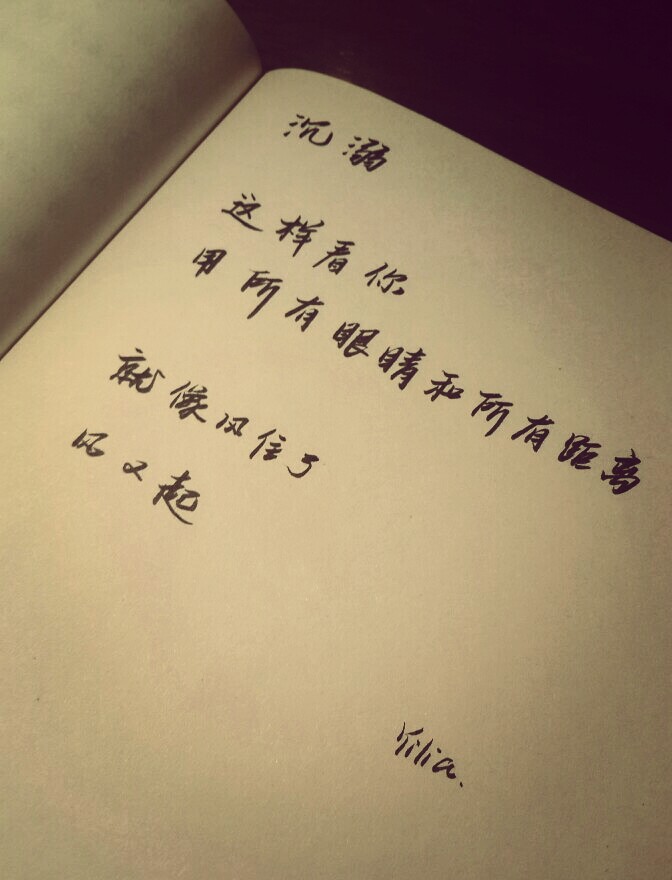 沉溺
这样看你
用所有眼睛和所有距离
就像风住了
风又起
Yilia.